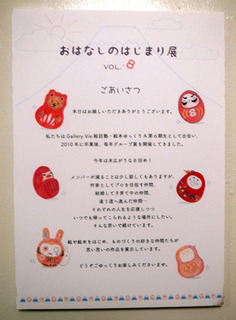 おはなしのはじまり展
VOL.8
ごあいさつ
本日はお越しいただきありがとうございます。
私たちはGallery Vie 絵話塾・絵本ゆっくりA 第6期生として出会い、
2010年に卒業後、毎年グループ展を開催してきました。
今年は末広がりな8回め！
メンバーが減ることは少し寂しくもありますが、
作家としてプロを目指す仲間、
結婚して子育て中の仲間、
違う道へ進んだ仲間…
それぞれの人生を応援しつつ
いつでも帰ってこられるような場所にしたい。
そんな思いで続けています。
絵や絵本をはじめ、ものづくりの好きな仲間たちが
思い思いの作品を展示しています。
どうぞごゆっくりお楽しみくださいませ。